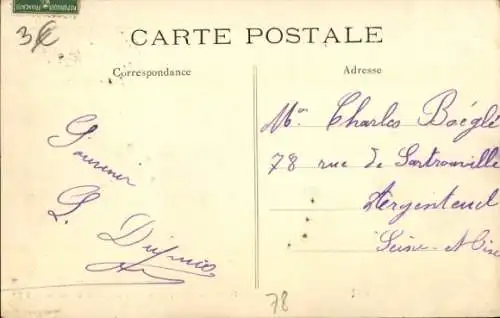 3€
CARTE POSTALE
Correspondance
Adresse
Mr Charles Boéglé
78 rue de Sartrouville
Argenteuil
Seine-et-Oise
78